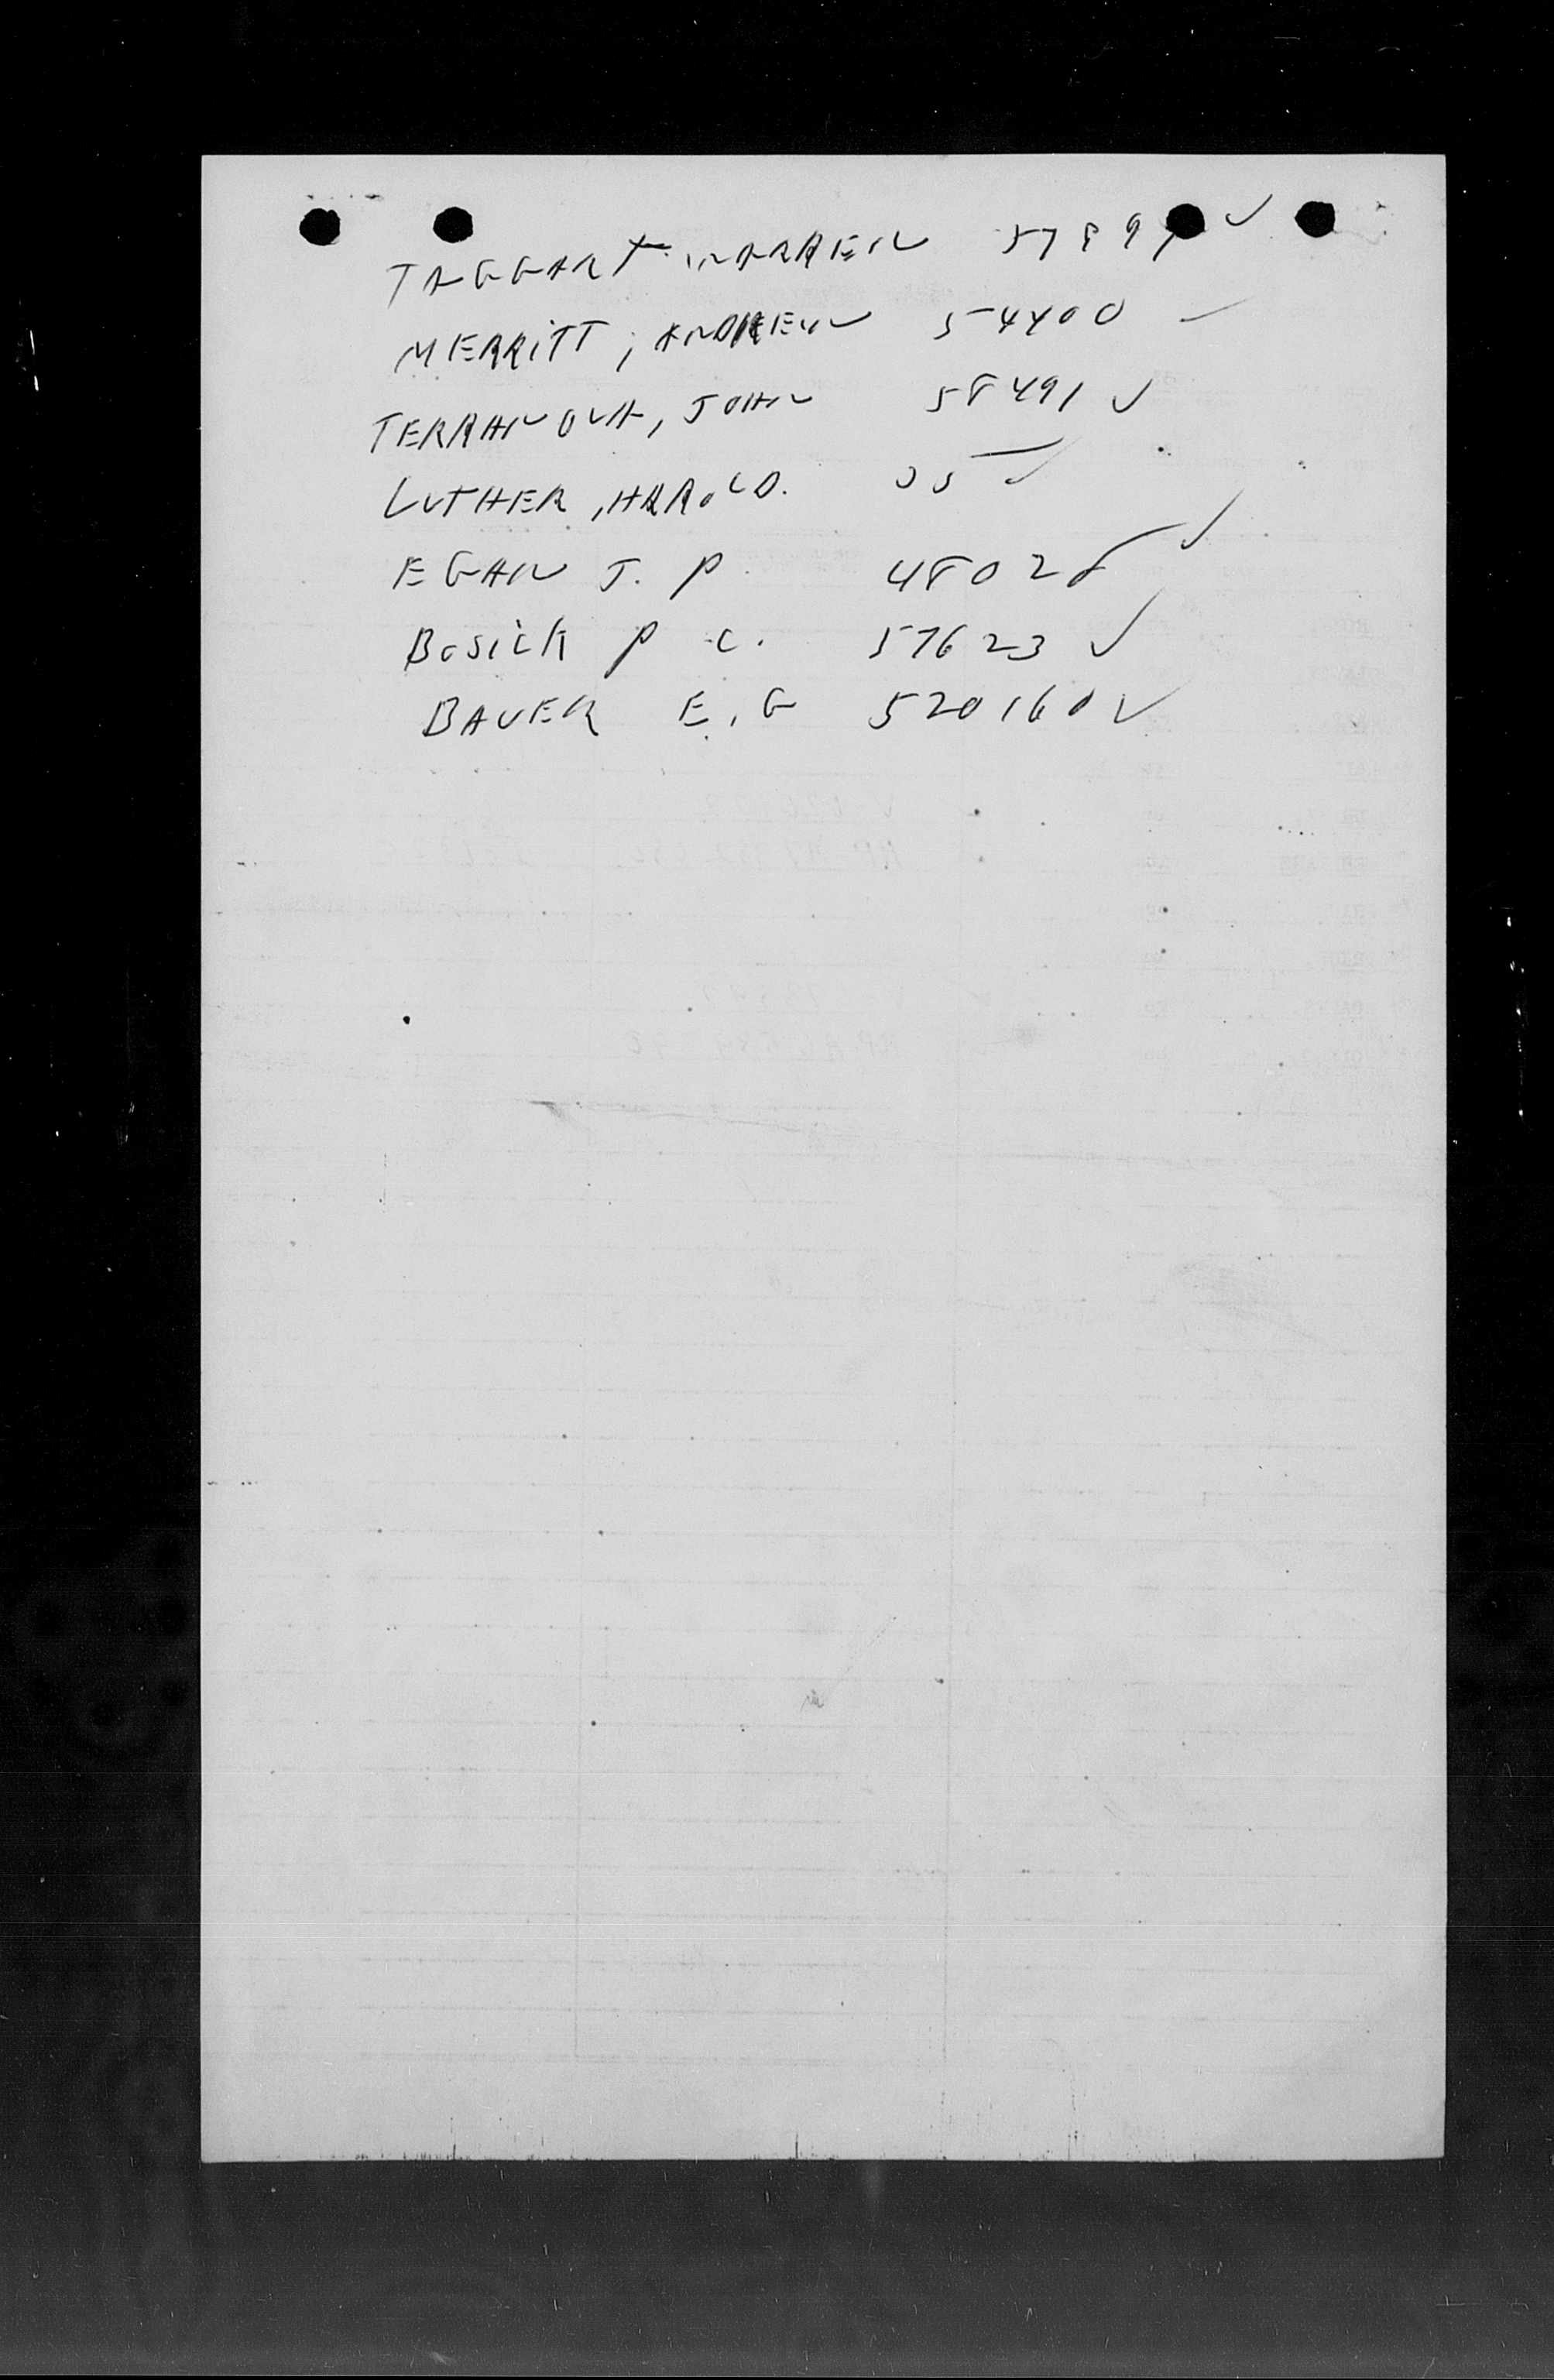 TAGGART WARREN 5789 ✓
MERRITT, ANDREW 54400
TERRANOVA, JOHN 58491 ✓
LUTHER, HAROLD. 55 ✓
EGAN J. P. 48028 ✓
BOSICK P C. 57623 ✓
BAUER E. G 520160 ✓